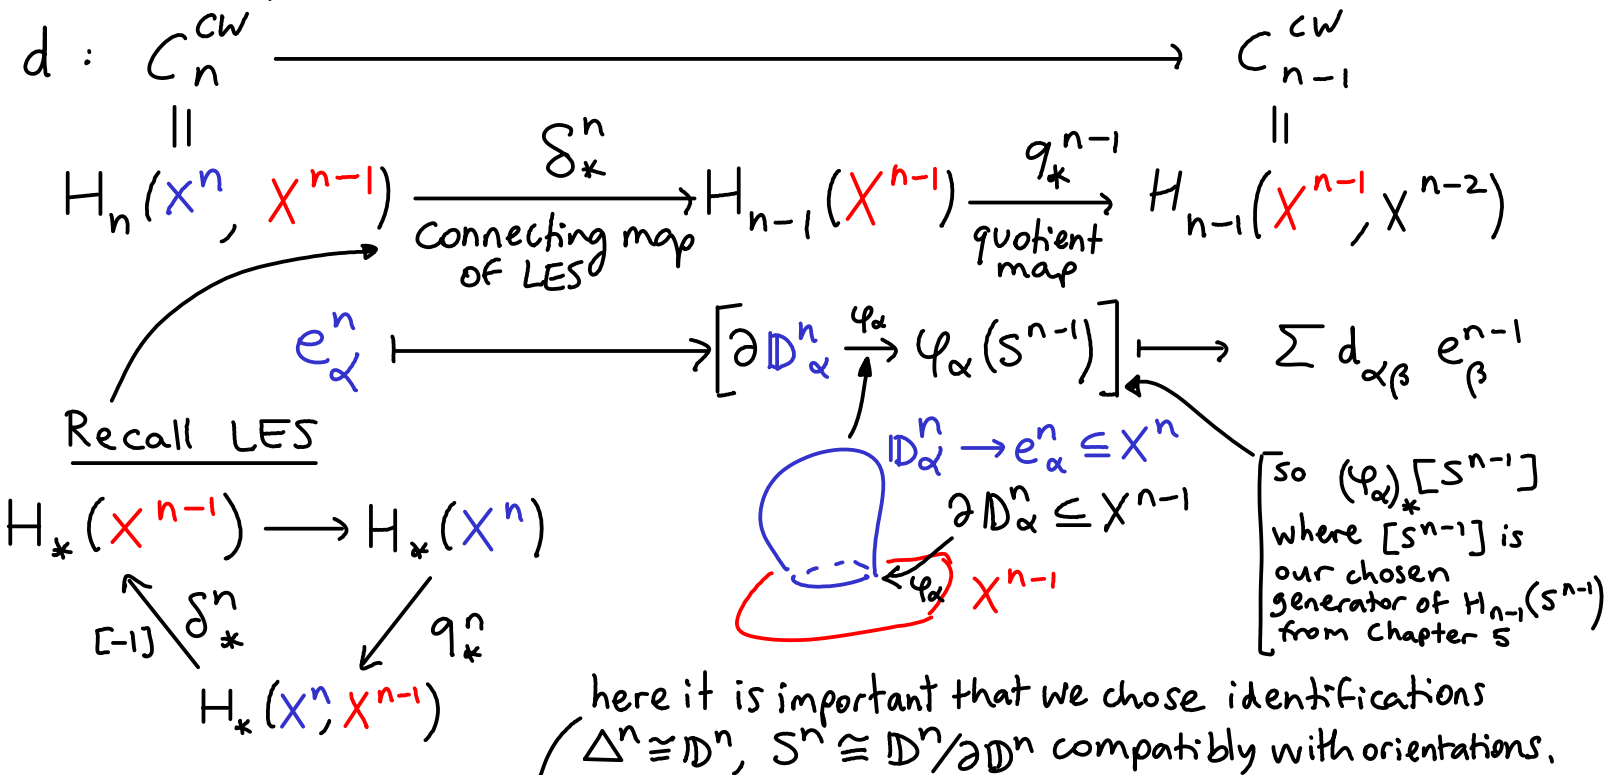 d : C_n^{CW} ⟶ C_{n-1}^{CW}
|| ||
H_n(X^n, X^{n-1}) ⟶ H_{n-1}(X^{n-1}) ⟶ H_{n-1}(X^{n-1}, X^{n-2})
δ_*^n q_*^{n-1}
connecting map quotient
of LES map
e_α^n ⟼ [∂𝔻_α^n ⟶^{φ_α} φ_α(S^{n-1})] ⟼ Σ d_{αβ} e_β^{n-1}
Recall LES
H_*(X^{n-1}) ⟶ H_*(X^n)
[-1] δ_*^n q_*^n
H_*(X^n, X^{n-1})
𝔻_α^n → e_α^n ⊆ X^n
∂𝔻_α^n ⊆ X^{n-1}
φ_α X^{n-1}
so (φ_α)_*[S^{n-1}]
where [S^{n-1}] is
our chosen
generator of H_{n-1}(S^{n-1})
from Chapter 5
here it is important that we chose identifications
Δ^n ≅ 𝔻^n, S^n ≅ 𝔻^n/∂𝔻^n compatibly with orientations.